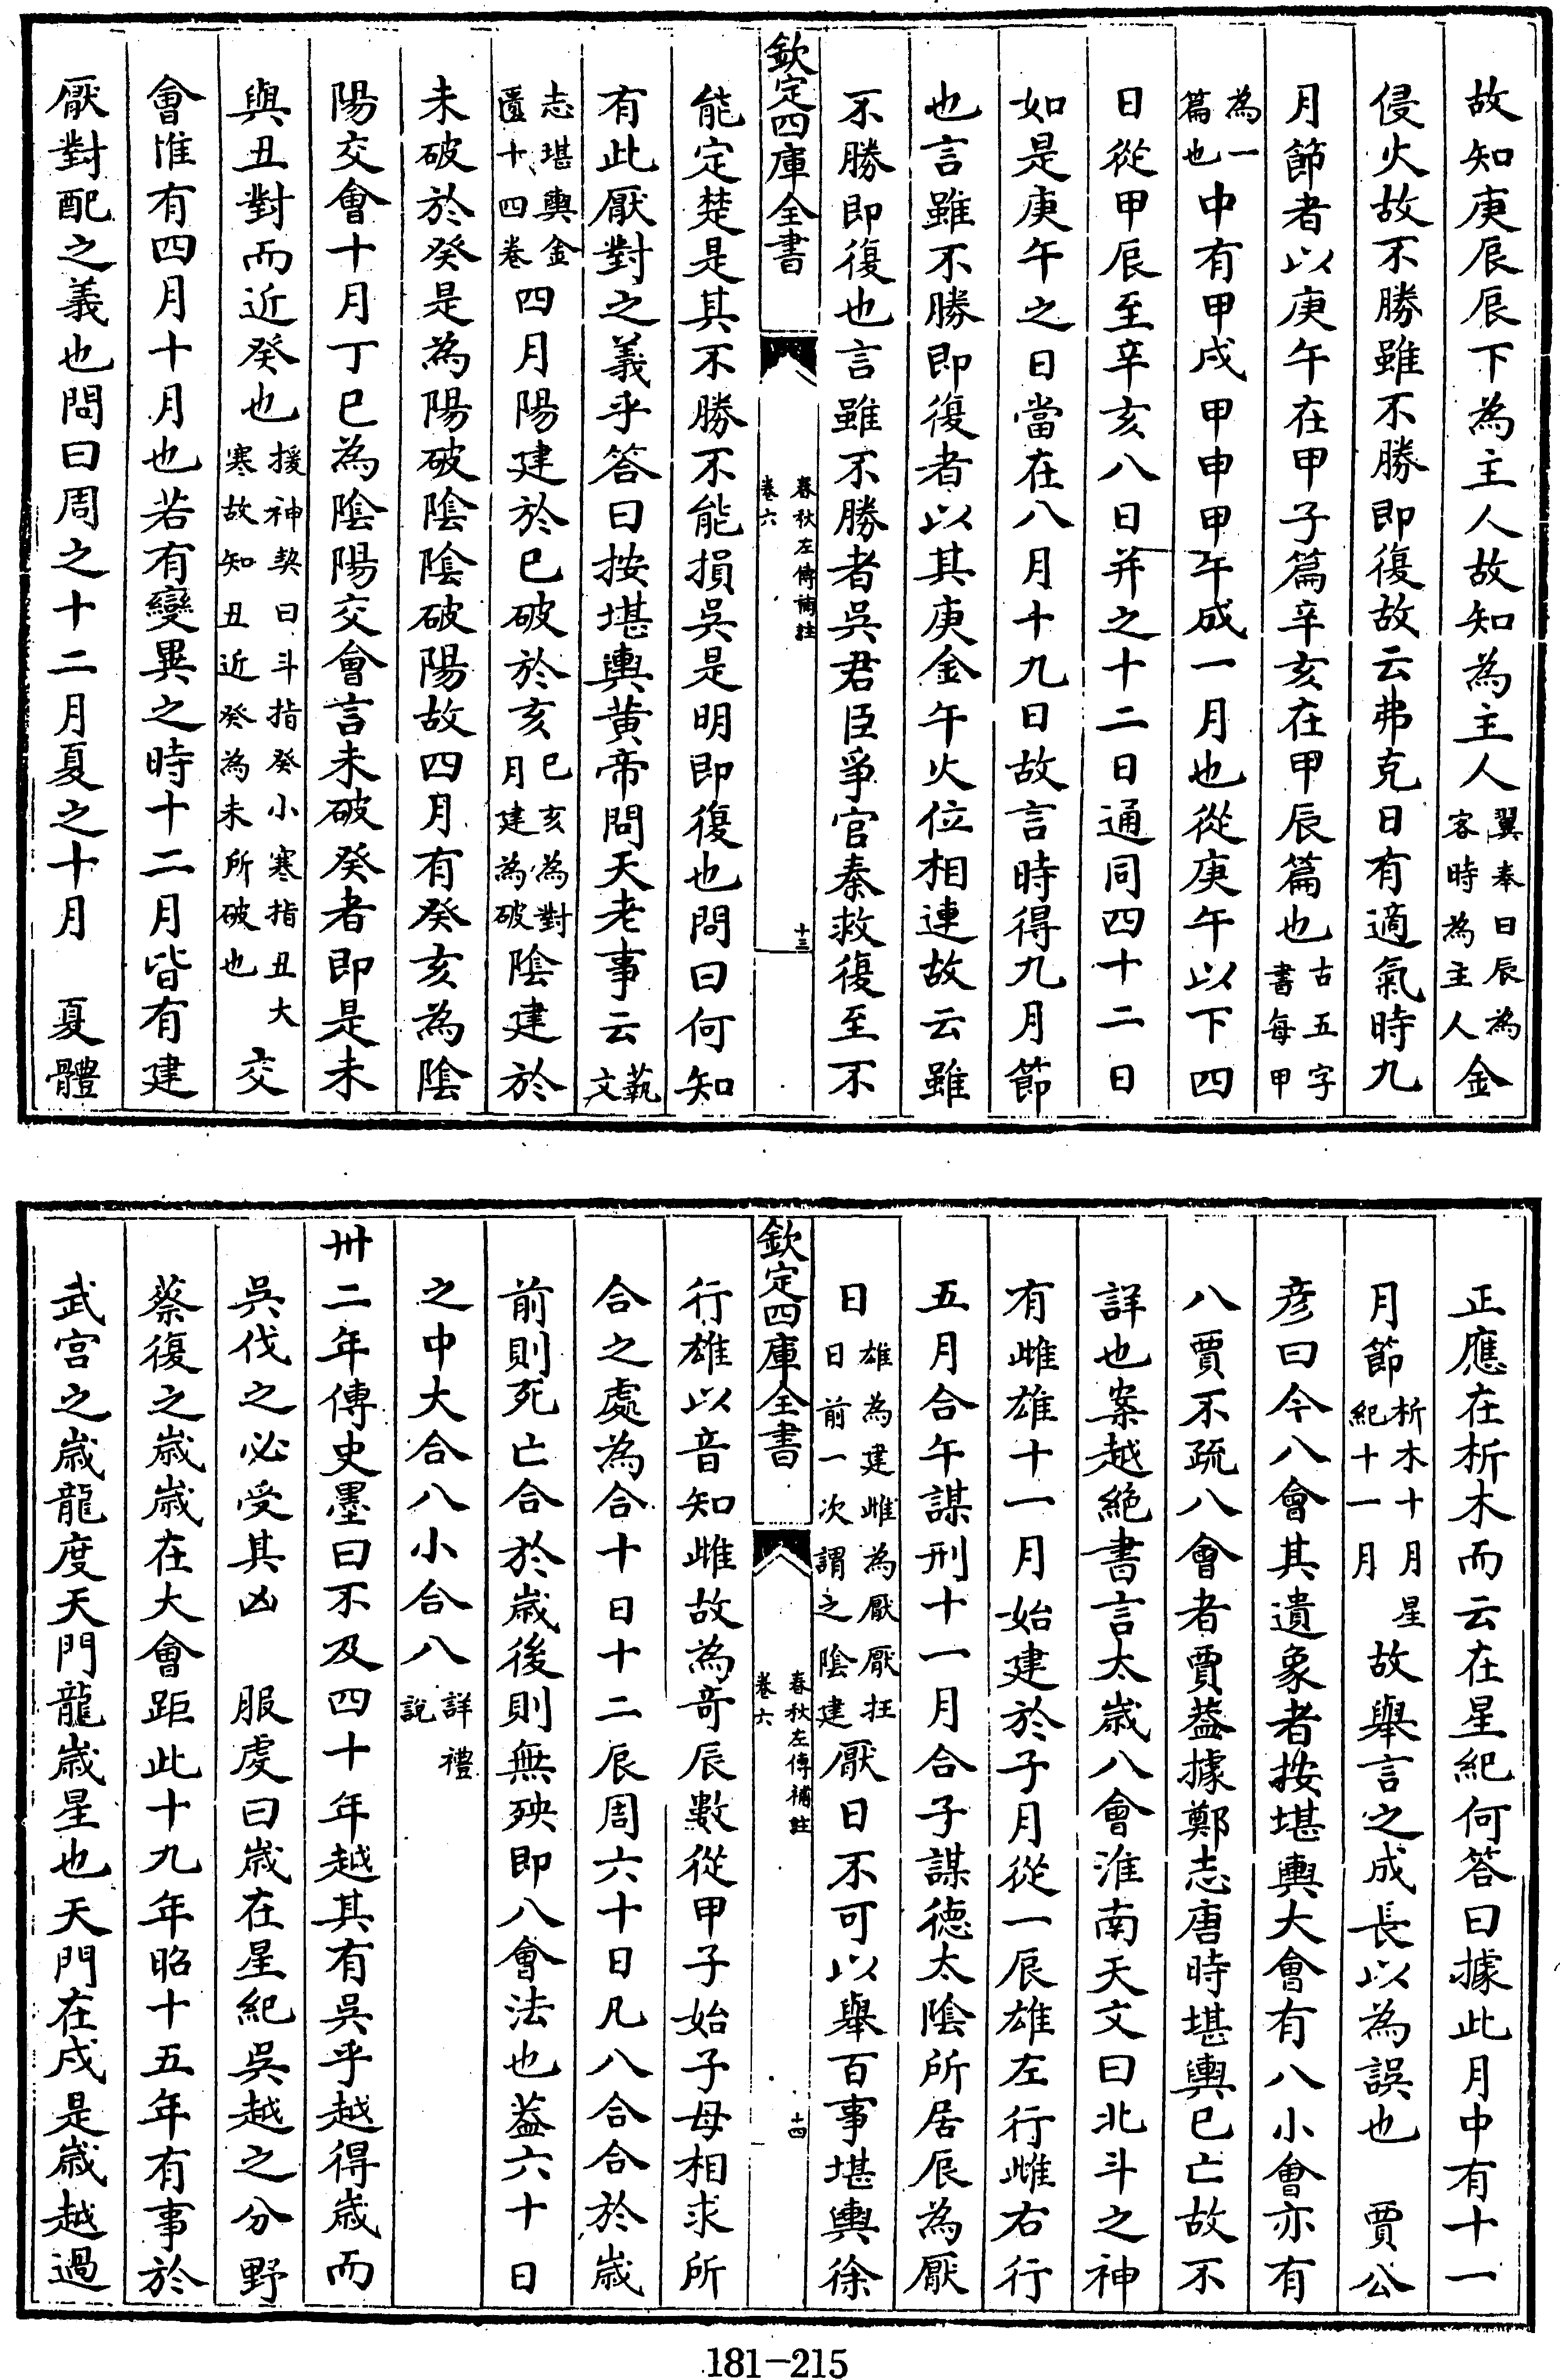 故知庚辰辰下為主人故知為主人翼奉曰辰為客時為主人金
侵火故不勝雖不勝即復故云弗克日有適氣時九
月節者以庚午在甲子篇辛亥在甲辰篇也古五字書每甲
為一篇也中有甲戌甲申甲午成一月也從庚午以下四
日從甲辰至辛亥八日并之十二日通同四十二日
如是庚午之日當在八月十九日故言時得九月節
也言雖不勝即復者以其庚金午火位相連故云雖
不勝即復也言雖不勝者吳君臣爭官秦救復至不
欽定四庫全書
春秋左傳補註
卷六
十三
能定楚是其不勝不能損吳是明即復也問曰何知
有此厭對之義乎答曰按堪輿黄帝問天老事云藝文
志堪輿金匱十四卷四月陽建於巳破於亥巳亥為對月建為破陰建於
未破於癸是為陽破陰陰破陽故四月有癸亥為陰
陽交會十月丁巳為陰陽交會言未破癸者即是未
與丑對而近癸也援神契曰斗指癸小寒指丑大寒故知丑近癸為未所破也交
會惟有四月十月也若有變異之時十二月皆有建
厭對配之義也問曰周之十二月夏之十月 夏體
正應在析木而云在星紀何答曰據此月中有十一
月節析木十月星紀十一月故舉言之成長以為誤也 賈公
彥曰今八會其遺象者按堪輿大會有八小會亦有
八賈不疏八會者賈葢據鄭志唐時堪輿已亡故不
詳也案越絕書言太歲八會淮南天文曰北斗之神
有雌雄十一月始建於子月從一辰雄左行雌右行
五月合午謀刑十一月合子謀德太陰所居辰為厭
日雄為建雌為厭厭在日前一次謂之陰建厭日不可以舉百事堪輿徐
欽定四庫全書
春秋左傳補註
卷六
十四
行雄以音知雌故為奇辰數從甲子始子母相求所
合之處為合十日十二辰周六十日凡八合合於歲
前則死亡合於歲後則無殃即八會法也葢六十日
之中大合八小合八詳禮說
卅二年傳史墨曰不及四十年越其有吳乎越得歲而
吳伐之必受其凶 服虔曰歲在星紀吳越之分野
蔡復之歲歲在大會距此十九年昭十五年有事於
武宮之歲龍度天門龍歲星也天門在戌是歲越過
181-215